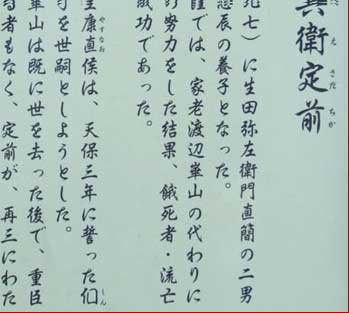 兵衛定前
え さだ ちか
七）に生田弥左衛門直簡の二男
辰の養子となった。
饉では、家老渡辺崋山の代わりに
の努力をした結果、餓死者・流亡
成功であった。
康直侯は、天保三年に誓った㐰
やすなお しん
を世嗣としようとした。
崋山は既に世を去った後で、重臣
者もなく、定前が、再三にわた